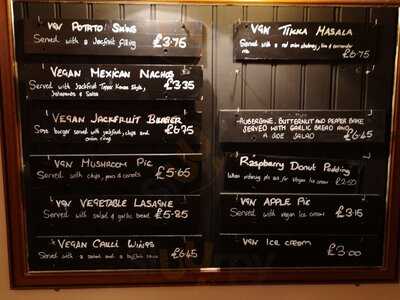 VGN POTATO SKINS
Served with a Jackfruit filling £3.75
VEGAN MEXICAN NACHOS
Served with Jackfruit Texas Style,
Jalapenos & Salsa £3.35
VEGAN JACKFRUIT BURGER
Served with jackfruit, chips and
onion rings £6.75
VGN MUSHROOM PIE
Served with chips, peas & carrots £5.65
VGN VEGETABLE LASAGNE
Served with salad & garlic bread £5.25
VEGAN CAULI WINGS
Served with a salad and a buffalo sauce £6.45
VGN TIKKA MASALA
Served with a red onion chutney, lime & coriander
£5.75
AUBERGINE, BUTTERNUT AND PEPPER BAKE
SERVED WITH GARLIC BREAD AND
A SIDE SALAD £6.45
Raspberry Donut Pudding
When ordering pls ask for Vegan ice cream £2.50
VGN APPLE PIE
Served with vegan ice cream £3.15
VGN ICE CREAM
£3.00